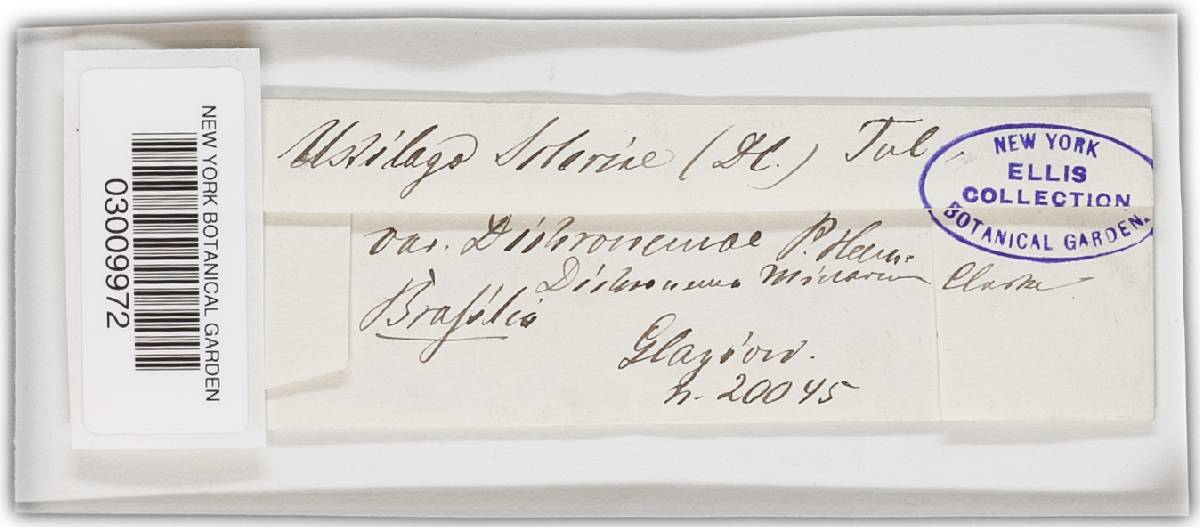 NEW YORK BOTANICAL GARDEN
03009972
Ustilago Scleriae (DC.) Tul.
NEW YORK
ELLIS
COLLECTION
BOTANICAL GARDEN.
var. Dichronemae P. Henn.
Dichronema Minarum Clarke
Brasilia
Glaziou.
n. 20045